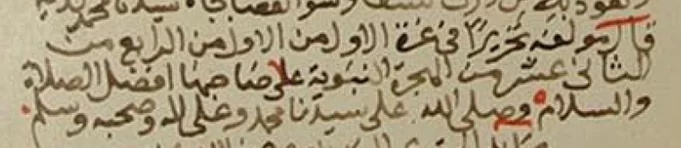 وسوء القضا بجاه سيدنا محمد
قال مولفه تحريرا في غرة الاول من الاول من الرابع من
الثاني عشر من الهجرة النبوية على صاحبها افضل الصلاة
والسلام وصلى الله على سيدنا محمد وعلى اله وصحبه وسلم